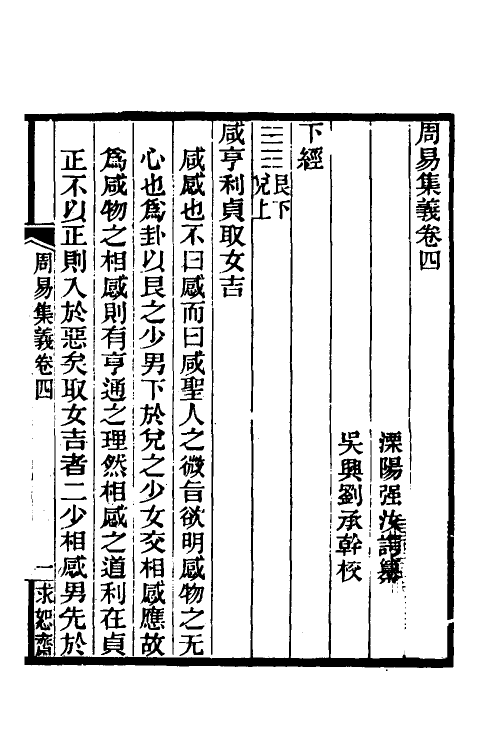 周易集義卷四
溧陽强汝諤纂
吳興劉承幹校
下經
艮下
兌上
咸亨利貞取女吉
咸感也不曰感而曰咸聖人之微旨欲明感物之无
心也爲卦以艮之少男下於兌之少女交相感應故
爲咸物之相感則有亨通之理然相感之道利在貞
正不以正則入於惡矣取女吉者二少相感男先於
周易集義卷四
一
求恕齋